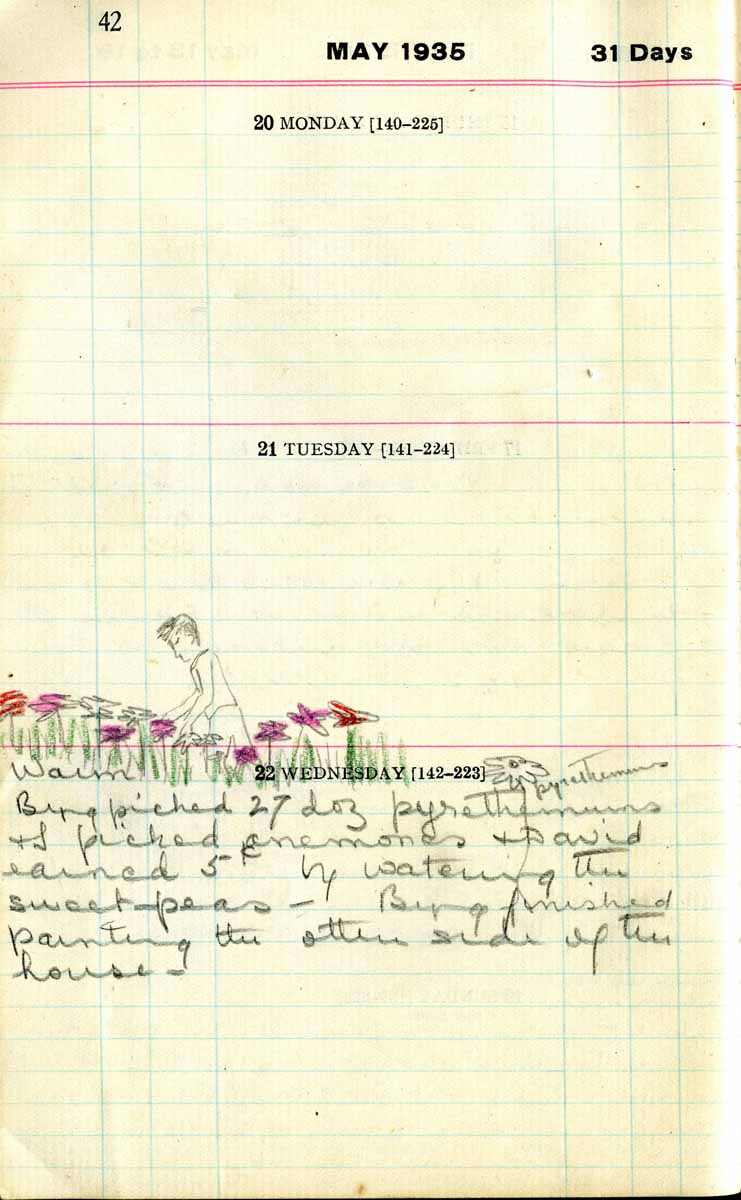 42
MAY 1935 31 Days
20 MONDAY [140–225]
21 TUESDAY [141–224]
Warm 22 WEDNESDAY [142–223] pyrethemums
Byng picked 27 doz pyrethemums
+ I picked anemones + David
earned 5¢ by watering the
sweet-peas – Byng finished
painting the other side of the
house –